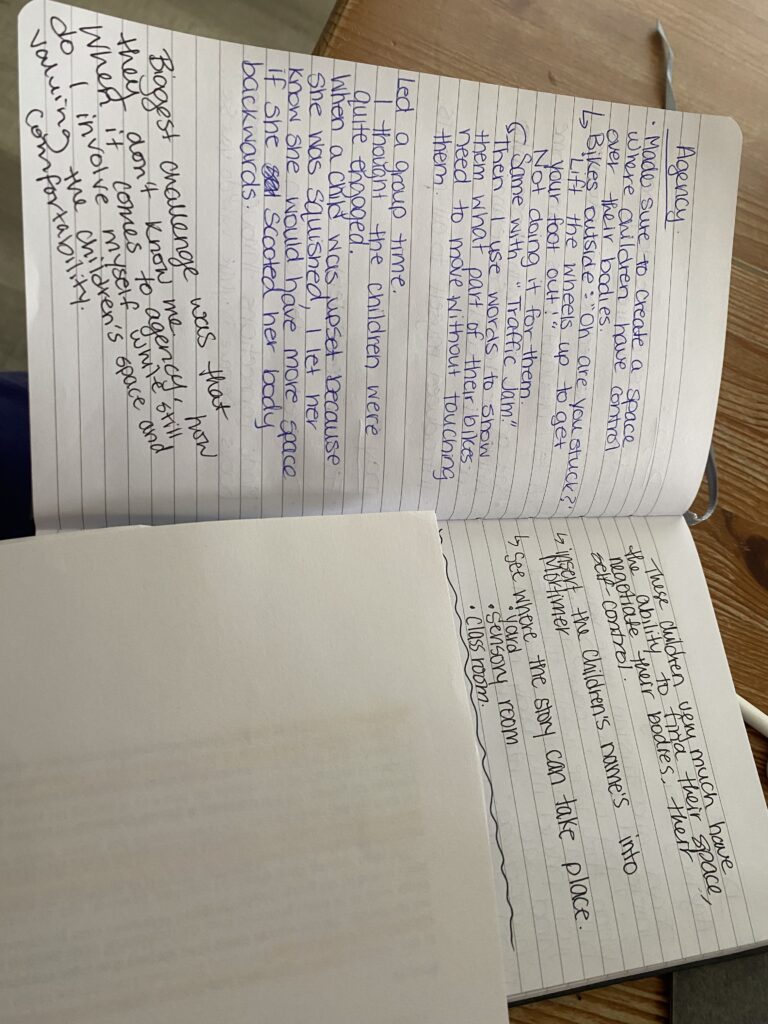 Agency.
• Made sure to create a space
where children have control
over their bodies.
↳ Bikes outside: "Oh are you stuck?
Lift the wheels up to get
your foot out!"
Not doing it for them.
↳ Same with "Traffic Jam"
Then I use words to show
them what part of their bikes
need to move without touching
them.
Led a group time.
I thought the children were
quite engaged.
When a child was upset because
she was squished, I let her
know she would have more space
if she scooted her body
backwards.
Biggest challenge was that
they don't know me, how
When it comes to agency,
do I involve myself while still
valuing the children's space and
comfortability.
These children very much have
the ability to find their space,
negotiate their bodies, their
self control.
↳ insert the children's name's into
Mortimer
↳ See where the story can take place.
• yard
• sensory room
• classroom.